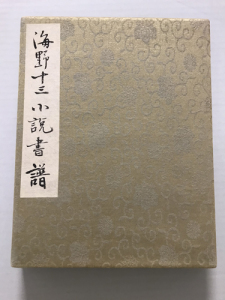 海野十三小説書譜